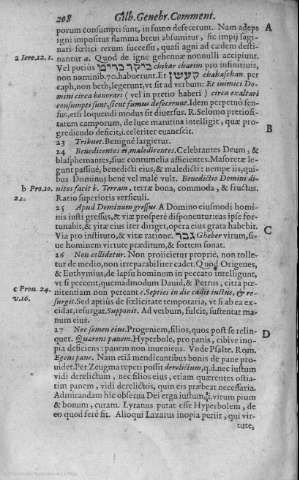 208 Gilb. Genebr. Comment.
porum consumpti sunt, in fumo defecerunt. Nam adeps A
igni impositus flamma brevi absumitur, sic impij sagi-
nati felici rerum successu, quasi agni ad cædem desti-
a Iere.12.3. nantur a. Quod de igne gehennæ nonnulli accipiunt.
Vel potius chekar charim pro infinitum,
non nominib. 70. habuerunt. Et chabaschan per
caph, non beth, legerunt, vt sit ad verbum: Et inimici Domi-
ni circa honorari (vel in pretio haberi) circa exaltari
consumpti sunt, sicut fumus defecerunt. Idem perpetuò sen-
su, etsi loquendi modus sit diversus. R. Selemo pretiosi-
tatem camporum, de luce matutina intelligit, quæ pro-
grediendo deficit, & celeriter euanescit. B
23 Tribuet. Benignè largietur.
24 Benedicentes ei, maledicentes. Celebrantes Deum, &
blasphemantes, siue contumelia afficientes. Masoretæ le-
gunt passiuè, benedicti eius, & maledicti: nempe iis, qui-
bus Dominus benè vel malè vult. Benedictio Domini di-
b Pro.10. uites facit b. Terram, terræ bona, commoda, & fructus.
22. Ratio superioris versiculi.
25 Apud Dominum gressus. A Domino eiusmodi homi-
nis iusti gressus, & viæ prosperè disponuntur: eas ipse for-
tunabit, & vitæ eius iter diriget, opera eius grata habebit. C
Via pro instituto, & vitæ ratione. גבר Gheber virum, si-
ue hominem virtute præditum, & fortem sonat.
26 Non collidetur. Non proiicietur propriè, non tolle-
tur de medio, non irreparabiliter cadet. Quod Origenes,
& Euthymius, de lapsu hominis in peccatum intelligunt,
vt si peccarit, quemadmodum Dauid, & Petrus, citra pœ-
c Prou. 24. nitentiam non pereant. c Septies in die cadit iustus, & re-
v.16. surgit. Sed aptius de fœlicitate temporaria, vt si ab ea ex-
cidat, resurgat. Supponit. Ad verbum, fulcit, sustentat ma-
num eius.
27 Nec semen eius. Progeniem, filios, quos post se relin- D
quet. Quærens panem. Hyperbole, pro panis, cibive ino-
pia deficiens: panem non inueniens. Vnde Psalter. Rom.
Egens pane. Nam etiam mendicantibus bonis de pane pro-
uidet. Per Zeugma repeti possit derelictum, q.d. nec iustum
vidi derelictum, nec filios eius, etiam quærentes ostia-
tim panem, vidi derelictos, quin eis præbeat necessaria.
Admirandam hic obserua Dei erga iustum, & virum pium
& bonum, curam. Lyranus putat esse Hyperbolem, de
eo quod ferè fit. Alioqui Lazarus inopia periit, qui vir-
tute,